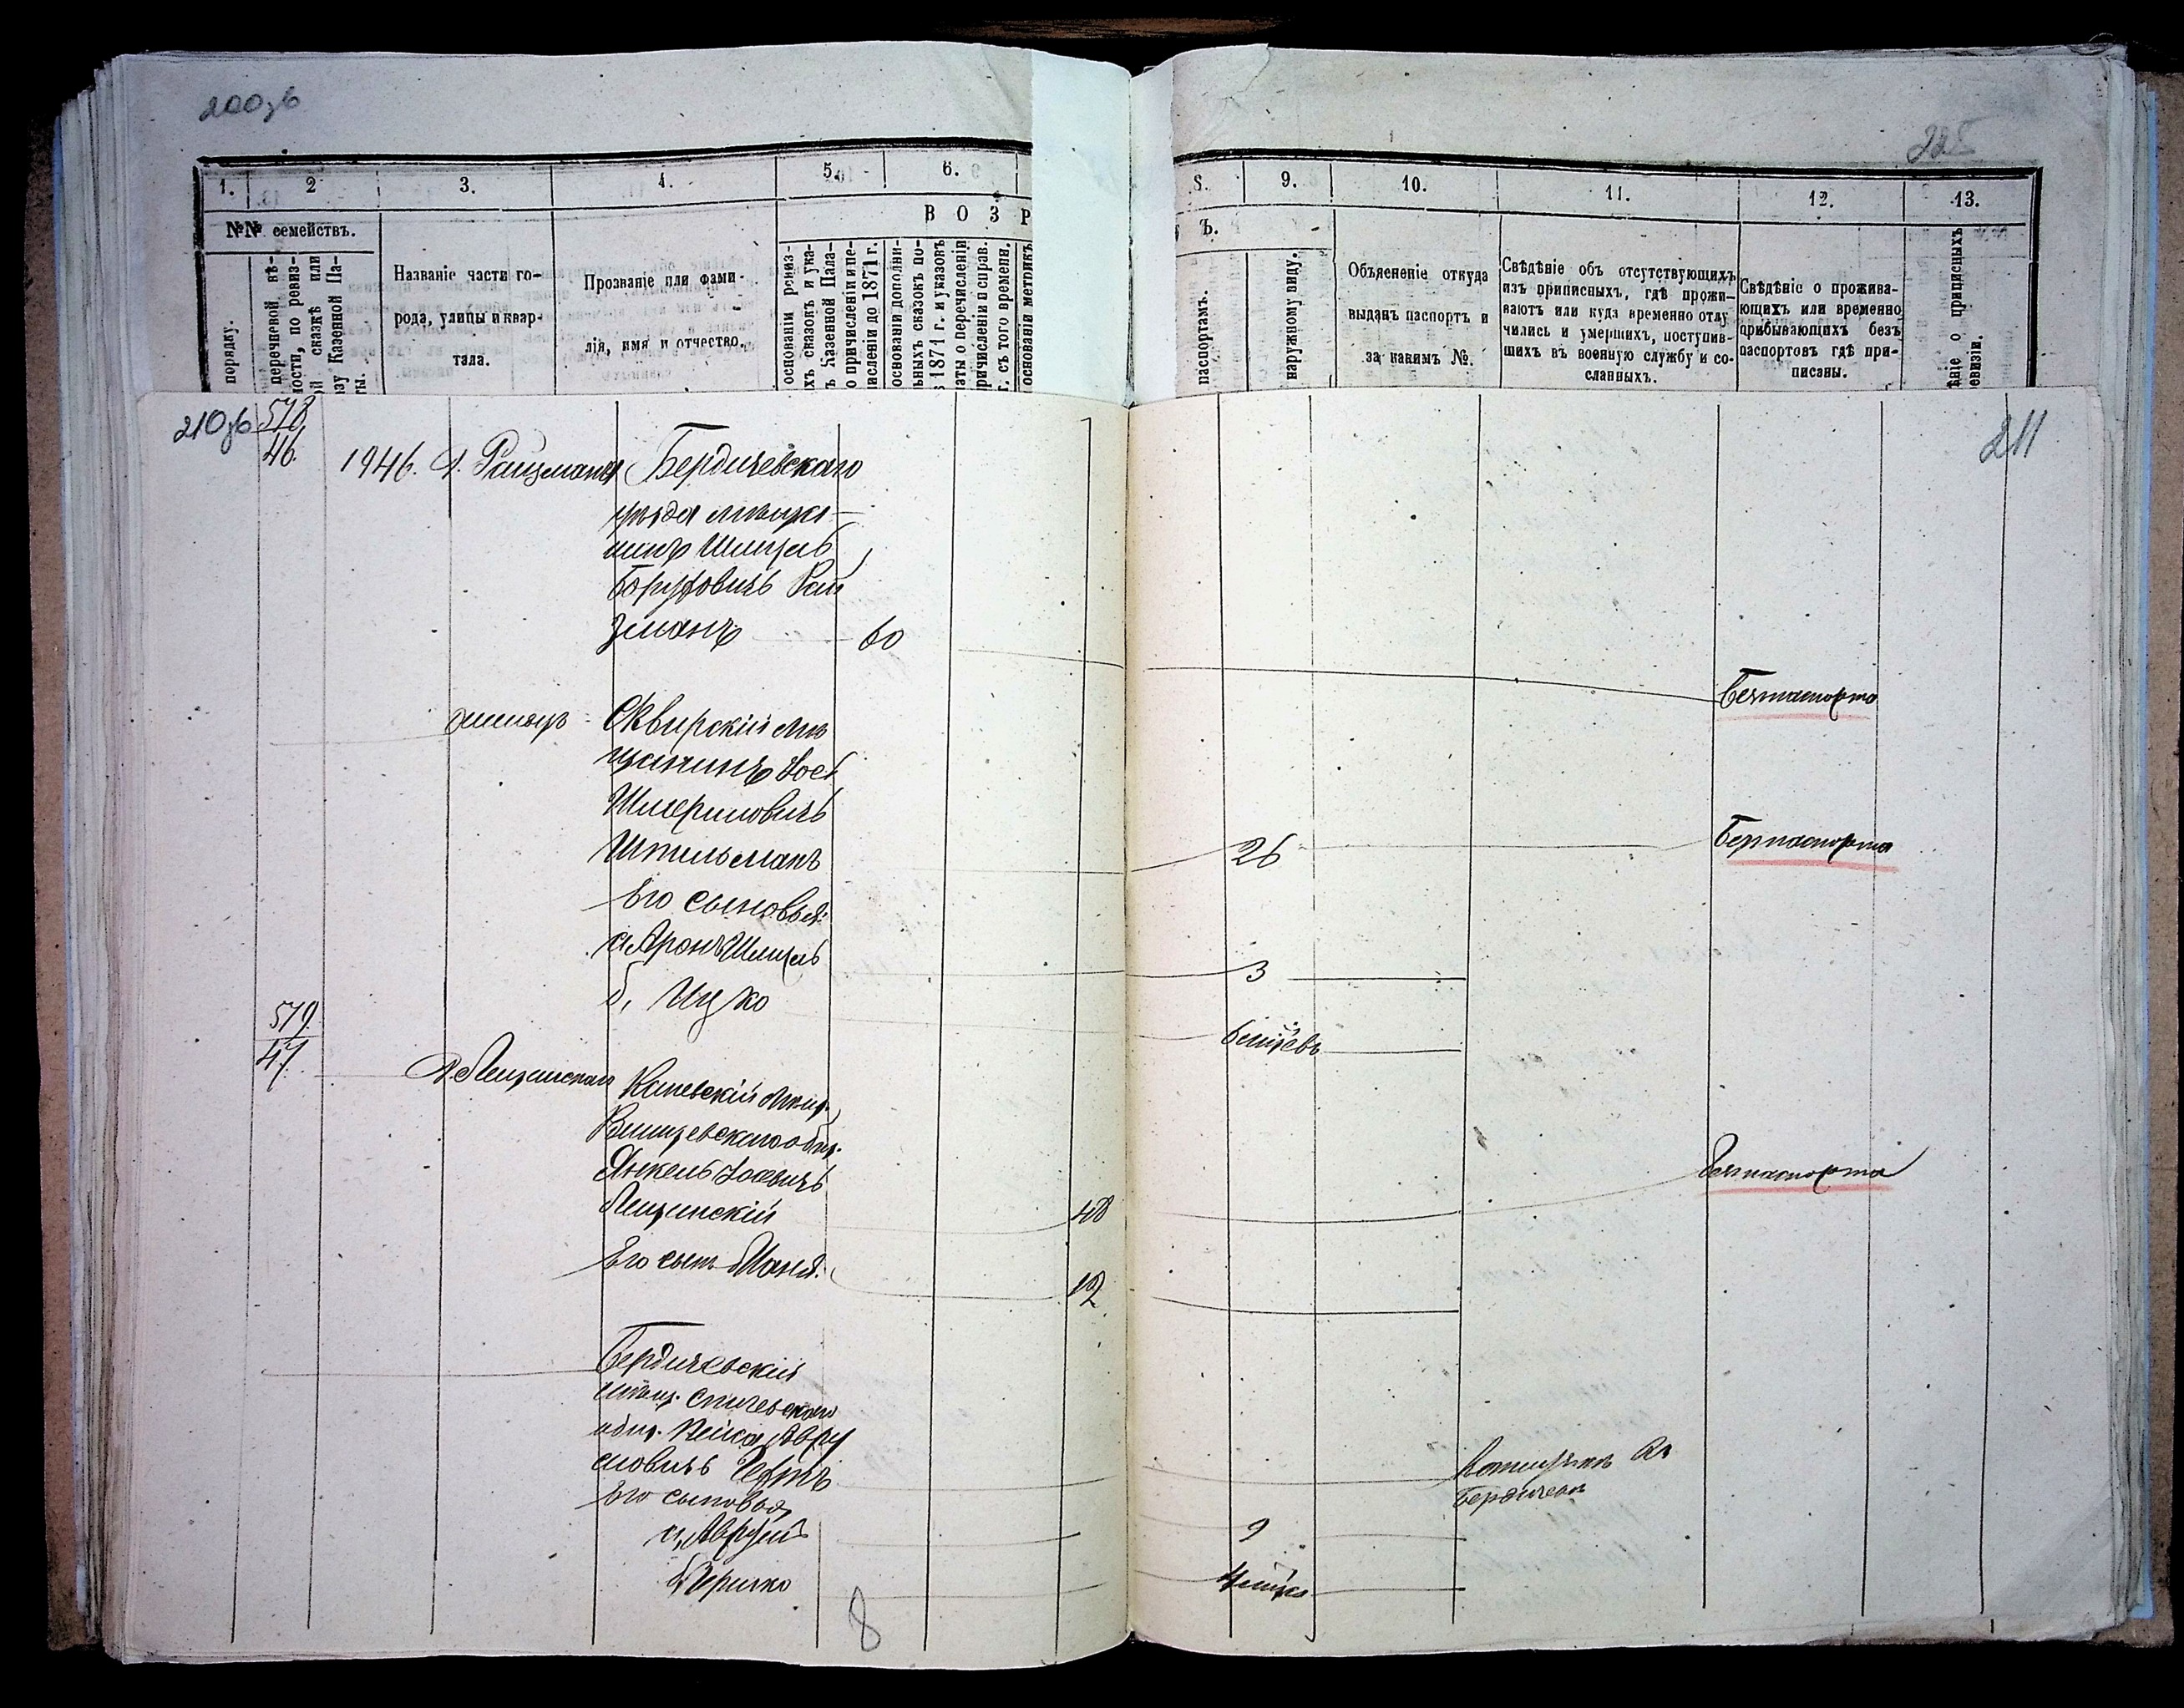 200об
225
1. 2 3. 4. 5. 6.
8. 9. 10. 11. 12. 13.
В О З Р
Ъ.
№№ семействъ.
порядку.
перечневой вѣ-
мости, по ревиз-
й сказкѣ или
зу Казенной Па-
ты.
Названіе части го-
рода, улицы и квар-
тала.
Прозваніе или фами-
лія, имя и отчество.
основаніи ревиз-
хъ сказокъ и ука-
ъ Казенной Пала-
о причисленіи и пе-
исленіи до 1871 г.
основаніи дополни-
ьныхъ сказокъ по-
ѣ 1871 г. и указовъ
латы о перечисленіи
ричисленіи и справ.
г. съ того времени.
основаніи метрикъ
паспортамъ.
наружному виду.
Объясненіе откуда
выданъ паспортъ и
за какимъ №.
Свѣдѣніе объ отсутствующихъ
изъ приписныхъ, гдѣ прожи-
ваютъ или куда временно отлу
чились и умершихъ, поступив-
шихъ въ военную службу и со-
сланныхъ.
Свѣдѣніе о прожива-
ющихъ или временно
прибывающихъ безъ
паспортовъ гдѣ при-
писаны.
ѣніе о приписныхъ
евизіи.
210об
211
578
46.
1946. д. Райзмана Бердичевскаго
уѣзда мѣща-
нинъ Шмуль
Боруховичъ Рай
зманъ 60
Безпаспорта
Сквирскій мѣ
щанинъ Іось
Шмериловичъ
Штильманъ 26 Безпаспорта
Его сыновья:
а, Аронъ Шмуль 3
б, Ицко 6 мѣсяцевъ
579.
47. Каневскій мѣщ.
общ.
Янкель Іосевичъ
Лещинскій 48 Безпаспорта
Его сынъ 12
Бердичевскій
мѣщ.
общ. Авру
мовичъ
Его сыновья
а, Аврумъ 9
б, Бердичева
4 мѣсяца
8